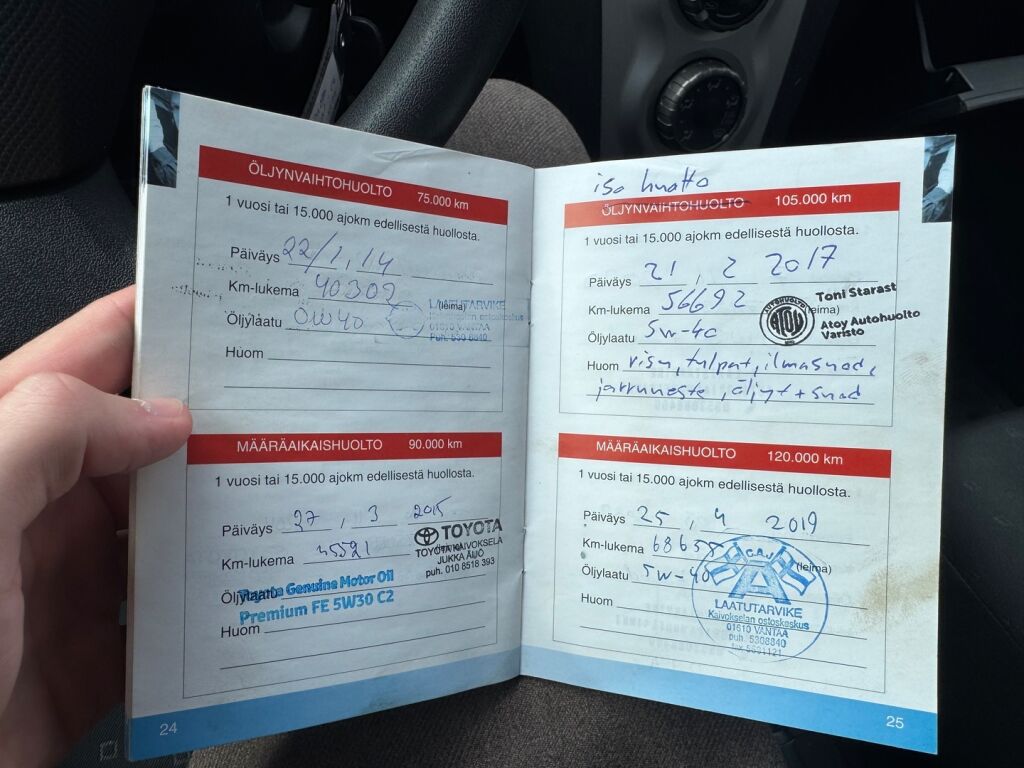 ÖLJYNVAIHTOHUOLTO 75.000 km
1 vuosi tai 15.000 ajokm edellisestä huollosta.
Päiväys 22/1, 14
Km-lukema 40302 (leima)
Öljylaatu 0W40
LAATUTARVIKE
Kaivokselan ostoskeskus
01610 VANTAA
Puh. 530 8840
Huom
MÄÄRÄAIKAISHUOLTO 90.000 km
1 vuosi tai 15.000 ajokm edellisestä huollosta.
Päiväys 27, 3 2015
Km-lukema 45521
TOYOTA
TOYOTA KAIVOKSELA
JUKKA AIJÖ
puh. 010 8518 393
Öljylaatu
Toyota Genuine Motor Oil
Premium FE 5W30 C2
Huom
24
iso huolto
ÖLJYNVAIHTOHUOLTO 105.000 km
1 vuosi tai 15.000 ajokm edellisestä huollosta.
Päiväys 21, 2 2017
Km-lukema 56692 (leima)
Öljylaatu 5w-40
AUTOHUOLTO
ATOY
Toni Starast
Atoy Autohuolto
Varisto
Huom visu, tulpat, ilmasuod,
jarruneste, öljyt + suod
MÄÄRÄAIKAISHUOLTO 120.000 km
1 vuosi tai 15.000 ajokm edellisestä huollosta.
Päiväys 25, 4 2019
Km-lukema 68655 (leima)
Öljylaatu 5w-40
Huom
LAATUTARVIKE
Kaivokselan ostoskeskus
01610 VANTAA
puh. 5308840
fax 5631121
25